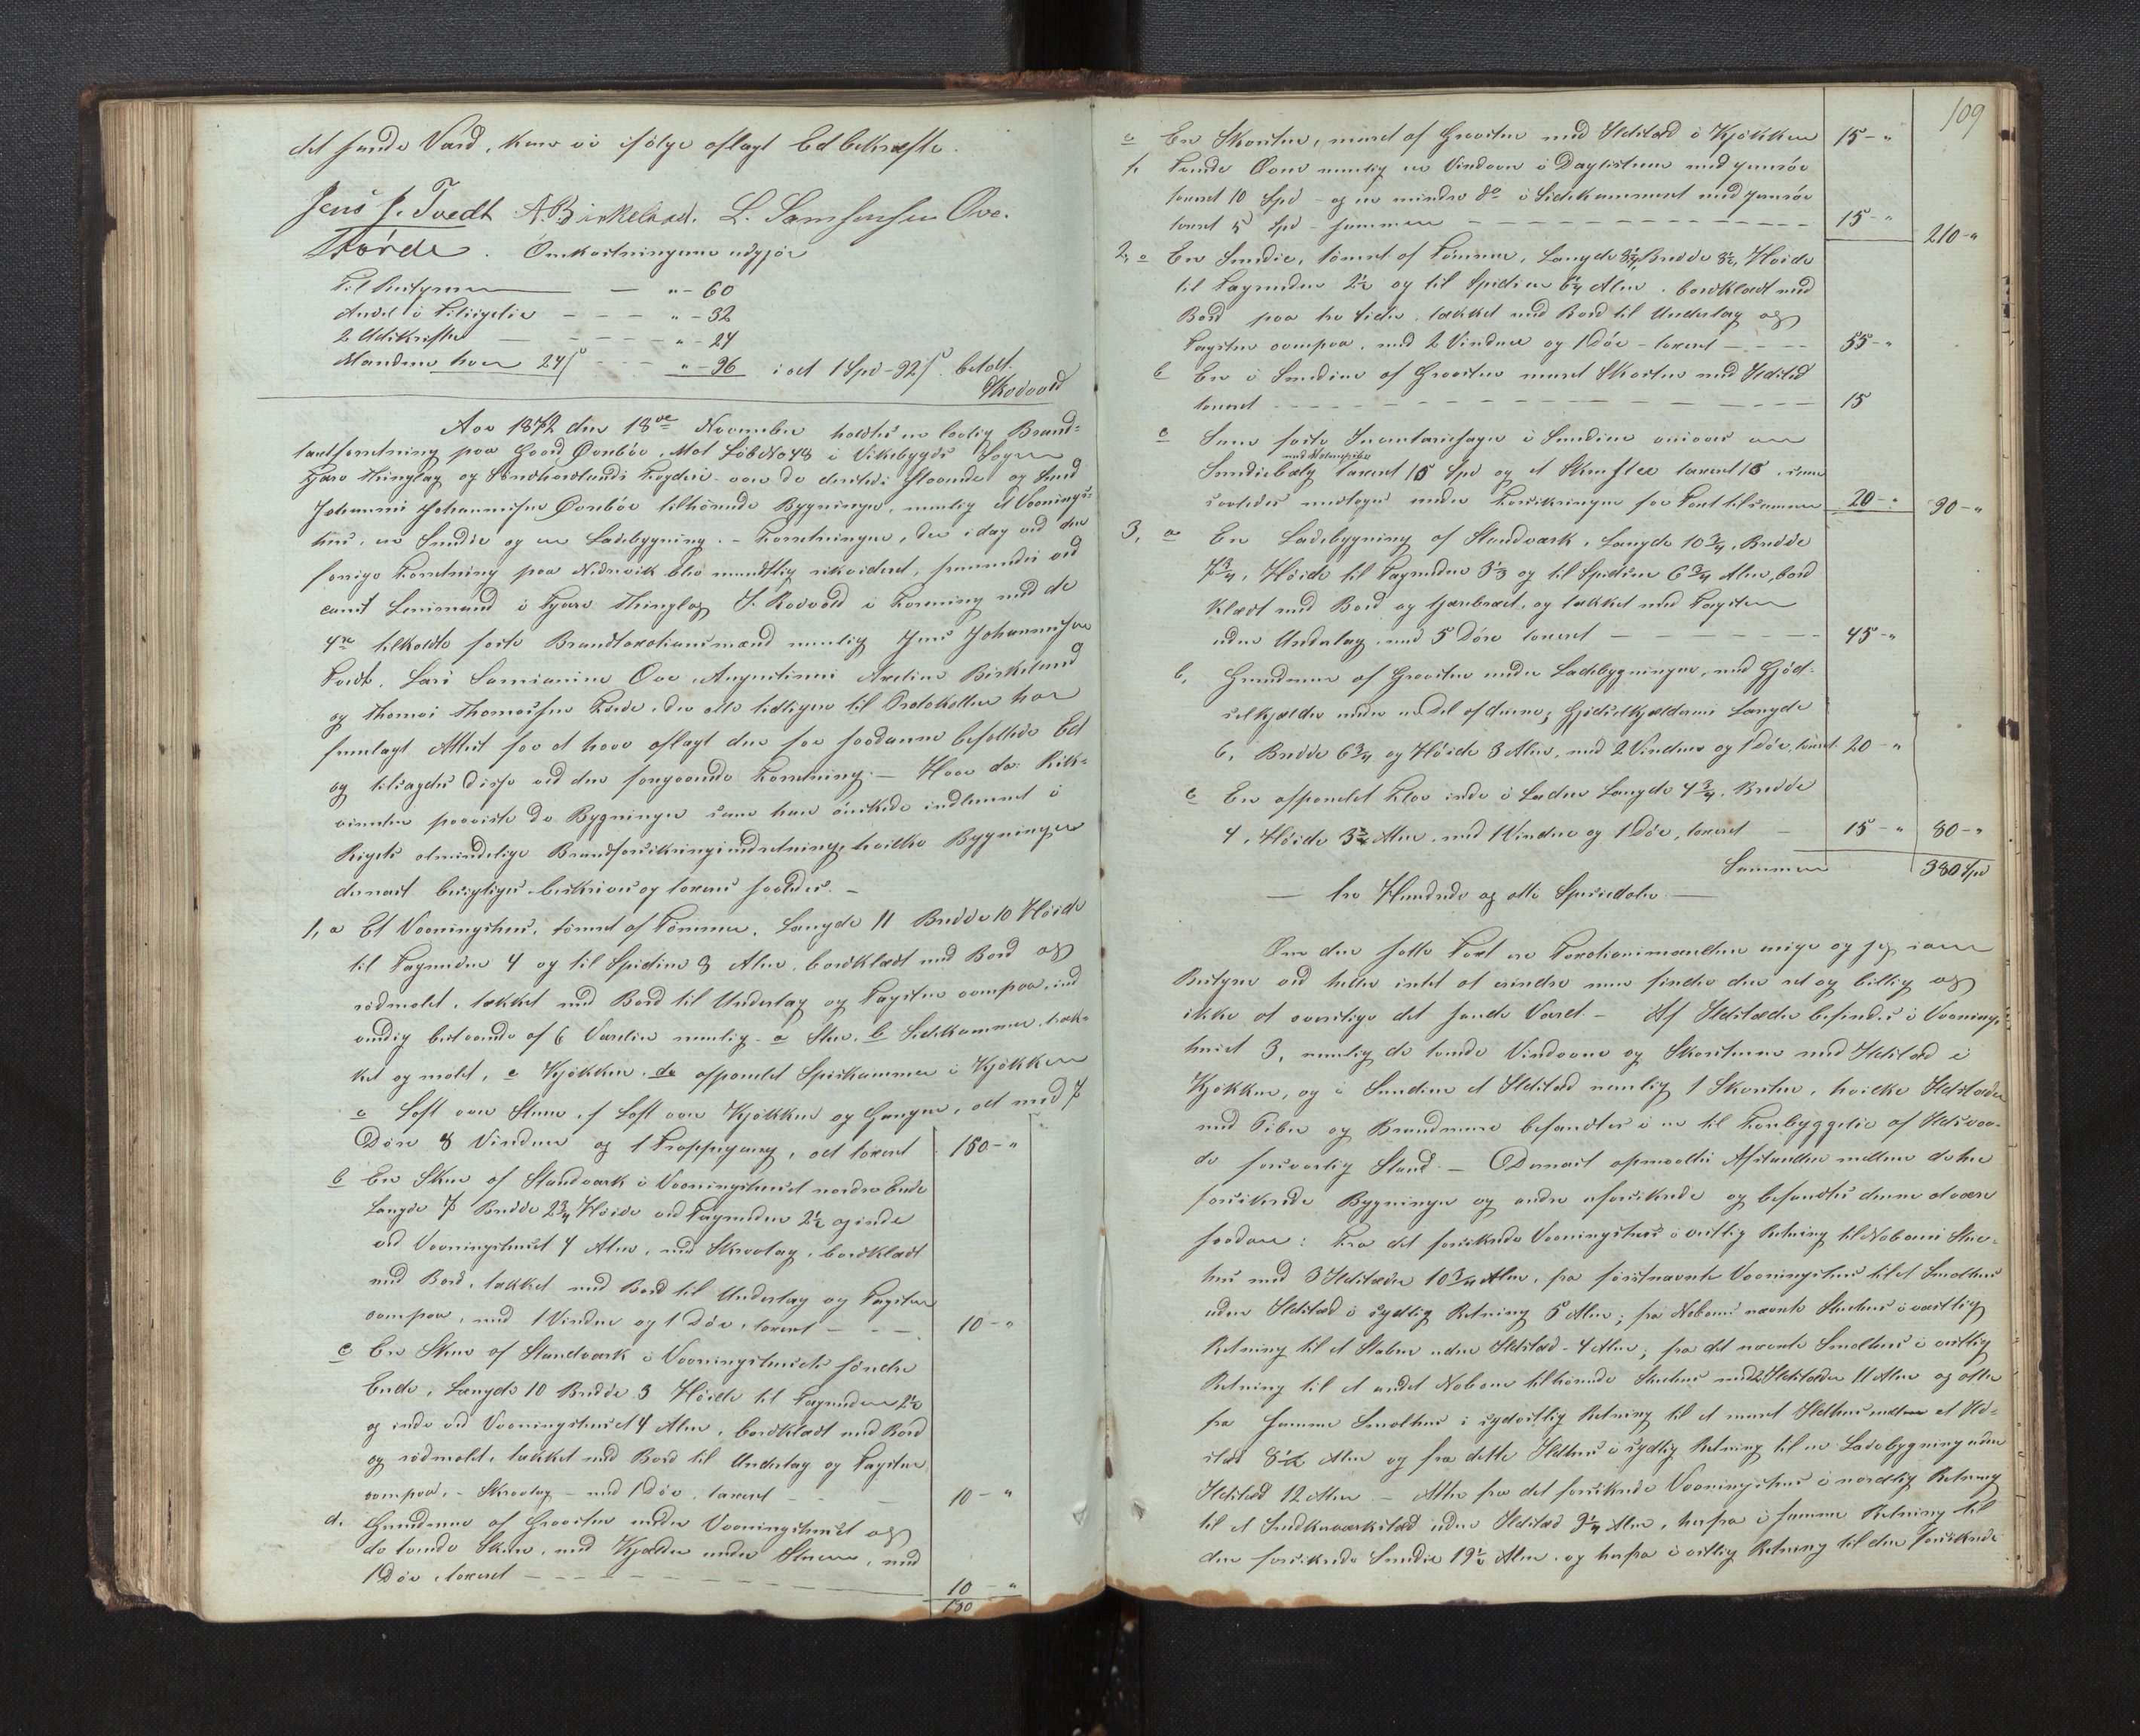 det sande Værd, kan vi ifølge aflagt Ed bekræfte.
Jens J. Tvedt A. Birkeland. L. Samsonsen Ove.
Førde. Omkostningerne udgjør
Til Bestyreren — — " - 60
Andel i Tilsigelse - - - " - 32
2 Udskrifter — - - - - " - 24
Mændene hver 24 ß - - - " - 96 i alt 1 Spd - 92 ß. betalt.
Rodvold
Aar 1872 den 18de November holdtes en lovlig Brand-
taxtforretning paa Gaard Øvrebøe, Mat Løb No 48 i Vikebygds Sogn
Fjære Thinglag og Søndhordlands Fogderi over de dersteds staaende og
Johannes Johannesen Øvrebøe tilhørende Bygninger, nemlig et Vaanings-
hus, en Smedie og en Ladebygning. - Forretningen, der i dag ved den
forrige Forretning paa Nedrevik blev mundtlig rekvireret, fremmedes ved
const Lensmand i Fjære Thinglag J. Rodvold i Forening med de
4re tilkaldte faste Brandtaxationsmænd nemlig Jens Johannesen
Tvedt, Lars Ove, Augustinus Axelsen Birkeland
og Thomas Thomassen Førde, der alle tidligere til Protokollen har
fremlagt Attest for at have aflagt den for saadanne befalede Ed
og tilsagdes disse ved den foregaaende Forretning. - Hvor da Rek-
virenten paaviste de Bygninger som han ønskede indlemmet i
Rigets almindelige Brandforsikringsindretning, hvilke Bygninger
dernæst besigtiges beskrives og taxeres saaledes. -
1, a Et Vaaningshus, tømret af Tømmer, Længde 11 Bredde 10 Høide
til Tagrenden 4 og til Spidsen 8 Alen, bordklædt med Bord og
rødmalet, tækket med Bord til Underlag og Tagsten ovenpaa, ind
vendig bestaaende af 6 Værelser nemlig a Stue, b Sidekammer, træk-
ket og malet, c Kjøkken, d afpanelet Spisekammer i Kjøkken
e Loft over Stuen, f Loft over Kjøkken og Gangen, alt med 7
Døre 8 Vinduer og 1 Trappegang, alt taxeret 150 - "
b En Skur af Standværk i Vaaningshusets nordre Ende
Længde 7 Bredde 2 3/4 Høide ved Tagrenden 2 1/2 og inde
ved Vaaningshuset 4 Alen, med Skraatag, bordklædt
med Bord, tækket med Bord til Underlag og Tagsten
ovenpaa, med 1 Vindue og 1 Dør, taxeret - - - 10 - "
c En Skur af Standværk i Vaaningshusets søndre
Ende, Længde 10 Bredde 3 Høide til Tagrenden 2 1/2
og inde ved Vaaningshuset 4 Alen, bordklædt med Bord
og rødmalet, tækket med Bord til Underlag og Tagsten
ovenpaa, - Skraatag - med 1 Dør, taxeret - - - 10 - "
d. Grundmur af Graasten under Vaaningshuset og
de tvende Skure, med Kjælder under Stuen, med
1 Dør, taxeret - - - - - - - 10 - "
180
109
e En Skorsten, muret af Graasten med Ildsted i Kjøkken 15 - "
f. Tvende Ovne nemlig en Vindovn i Dagligstuen med Jernrør
taxeret 10 Spd - og en mindre do i Sidekammeret med Jernrør
taxeret 5 Spd - sammen - - - - - - 15 - " 210 - "
2, a En Smedie, tømret af Tømmer, Længde 8 3/4, Bredde 8 1/2, Høide
til Tagrenden 2 1/2 og til Spidsen 6 1/4 Alen, bordklædt med
Bord paa tre Sider, tækket med Bord til Underlag og
Tagsten ovenpaa, med 2 Vinduer og 1 Dør - taxeret - - - 55 - "
b En i Smedien af Graasten muret Skorsten med Ildsted
taxeret - - - - - - - - 15
c Som faste Inventariesager i Smedien anvises en
Smediebælg taxeret 10 Spd og et taxeret 10, som
saaledes medtages under Forsikringen for Taxt tilsammen 20 - " 90 - "
3, a En Ladebygning af Standværk, Længde 10 3/4, Bredde
7 3/4, Høide til Tagrenden 3 1/3 og til Spidsen 6 3/4 Alen, bord
klædt med Bord og tjærebrædt, og tækket med Tagsten
uden Underlag, med 5 Døre taxeret - - - - 45 - "
b, Grundmur af Graasten under Ladebygningen, med Gjød-
selkjælder under en Del af denne; Gjødselkjælderens Længde
6, Bredde 6 3/4 og Høide 3 Alen, med 2 Vinduer og 1 Dør, taxeret. 20 - "
c En afpanelet Flor inde i Laden Længde 4 3/4, Bredde
4, Høide 3 1/4 Alen, med 1 Vindue og 1 Dør, taxeret - 15 - " 80 - "
Sammen 380 Spd
— tre Hundrede og otte Speciedaler —
Om den satte Taxt er Taxationsmændene enige og jeg som
Bestyrer ved heller intet at erindre men finder den ret og billig og
ikke at overstige det sande Værd. - Af Ildsteder befindes i Vaanings-
huset 3, nemlig de tvende Vindovne og Skorstenen med Ildsted i
Kjøkken, og i Smedien et Ildsted nemlig 1 Skorsten, hvilke Ildsteder
med Piber og Brandmure befandtes i en til Forebyggelse af Ildsvaa-
de forsvarlig Stand. - Dernæst opmaaltes Afstanden mellem de her
forsikrede Bygninger og andre uforsikrede og befandtes denne at være
saadan: Fra det forsikrede Vaaningshus i østlig Retning til Naboens Stue-
hus med 3 Ildsteder 10 3/4 Alen, fra førstnævnte Vaaningshus til et Smalhus
uden Ildsted i sydlig Retning 5 Alen; fra Naboens nævnte Stuehus i vestlig
Retning til et Stabur uden Ildsted - 4 Alen; fra det nævnte Smalhus i østlig
Retning til et andet Naboen tilhørende Stuehus med 2 Ildsteder 11 Alen og atter
fra samme Smalhus i sydøstlig Retning til et muret Ildhus med et Ild-
sted 8 1/2 Alen og fra dette Ildhus i sydlig Retning til en Ladebygning uden
Ildsted 12 Alen. - Atter fra det forsikrede Vaaningshus i nordlig Retning
til et Snedkerværksted uden Ildsted 9 1/4 Alen, herfra i samme Retning til
den forsikrede Smedie 19 1/2 Alen, og herfra i østlig Retning til den forsikrede